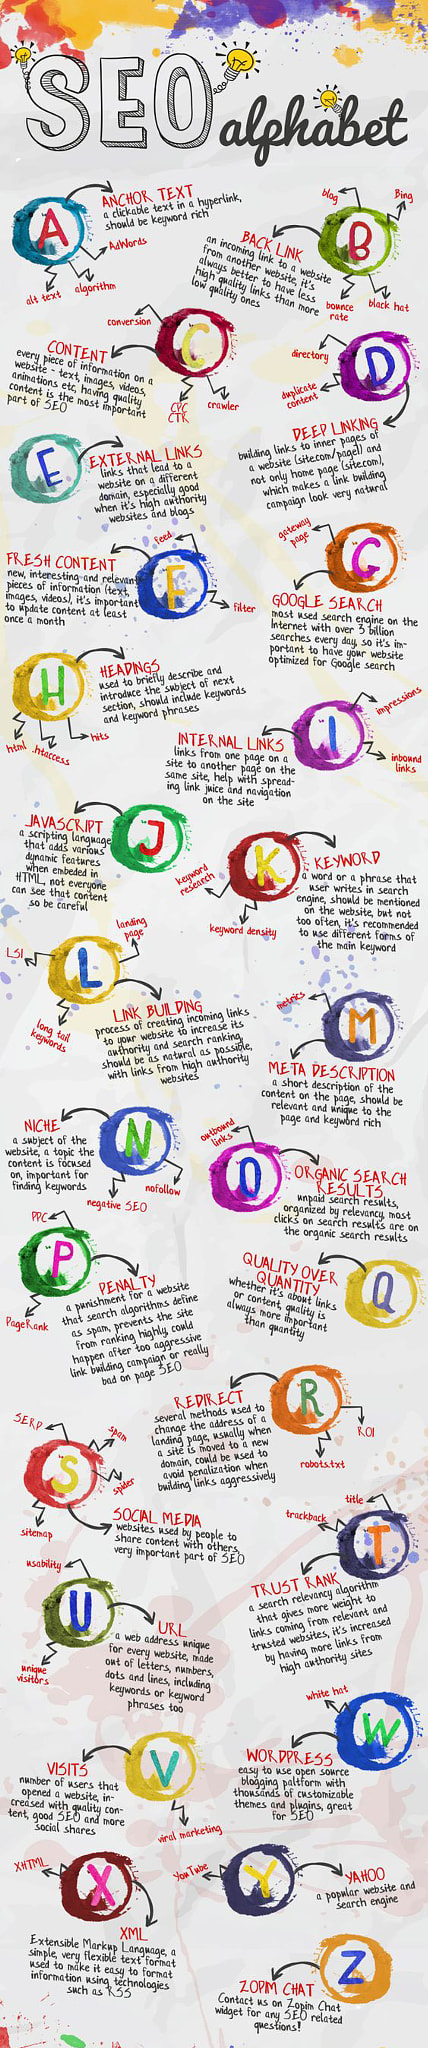 SEO
alphabet
A
ANCHOR TEXT
a clickable text in a hyperlink,
should be keyword rich
AdWords
algorithm
alt text
blog
Bing
B
BACK LINK
an incoming link to a website
from another website, it's
always better to have less
high quality links than more
low quality ones
bounce
rate
black hat
conversion
C
CONTENT
every piece of information on a
website - text, images, videos,
animations etc, having quality
content is the most important
part of SEO
CPC
CTR
crawler
directory
D
duplicate
content
DEEP LINKING
building links to inner pages of
a website (site.com/page) and
not only home page (site.com),
which makes a link building
campaign look very natural
E
EXTERNAL LINKS
links that lead to a
website on a different
domain, especially good
when it's high authority
websites and blogs
feed
F
FRESH CONTENT
new, interesting and relevant
pieces of information (text,
images, videos), it's important
to update content at least
once a month
filter
gateway
page
G
GOOGLE SEARCH
most used search engine on the
Internet with over 3 billion
searches every day, so it's im-
portant to have your website
optimized for Google search
H
HEADINGS
used to briefly describe and
introduce the subject of next
section, should include keywords
and keyword phrases
html
.htaccess
hits
impressions
I
INTERNAL LINKS
links from one page on a
site to another page on the
same site, help with spread-
ing link juice and navigation
on the site
inbound
links
J
JAVASCRIPT
a scripting language
that adds various
dynamic features
when embeded in
HTML, not everyone
can see that content
so be careful
K
keyword
research
keyword density
KEYWORD
a word or a phrase that
user writes in search
engine, should be mentioned
on the website, but not
too often, it's recommended
to use different forms of
the main keyword
landing
page
LSI
L
long tail
keywords
LINK BUILDING
process of creating incoming links
to your website to increase its
authority and search ranking,
should be as natural as possible,
with links from high authority
websites
metrics
M
META DESCRIPTION
a short description of the
content on the page, should be
relevant and unique to the
page and keyword rich
N
NICHE
a subject of the
website, a topic the
content is focused
on, important for
finding keywords
nofollow
negative SEO
outbound
links
O
ORGANIC SEARCH
RESULTS
unpaid search results,
organized by relevancy, most
clicks on search results are on
the organic search results
PPC
P
PageRank
PENALTY
a punishment for a website
that search algorithms define
as spam, prevents the site
from ranking highly, could
happen after too aggressive
link building campaign or really
bad on page SEO
Q
QUALITY OVER
QUANTITY
whether it's about links
or content quality is
always more important
than quantity
R
REDIRECT
several methods used to
change the address of a
landing page, usually when
a site is moved to a new
domain, could be used to
avoid penalization when
building links aggressively
ROI
robots.txt
SERP
spam
S
spider
sitemap
SOCIAL MEDIA
websites used by people to
share content with others,
very important part of SEO
title
trackback
T
TRUST RANK
a search relevancy algorithm
that gives more weight to
links coming from relevant and
trusted websites, it's increased
by having more links from
high authority sites
usability
U
unique
visitors
URL
a web address unique
for every website, made
out of letters, numbers,
dots and lines, including
keywords or keyword
phrases too
V
VISITS
number of users that
opened a website, in-
creased with quality con-
tent, good SEO and more
social shares
viral marketing
white hat
W
WORDPRESS
easy to use open source
blogging paltform with
thousands of customizable
themes and plugins, great
for SEO
XHTML
X
XML
Extensible Markup Language, a
simple, very flexible text format
used to make it easy to format
information using technologies
such as RSS
YouTube
Y
YAHOO
a popular website and
search engine
Z
ZOPIM CHAT
Contact us on Zopim Chat
widget for any SEO related
questions!